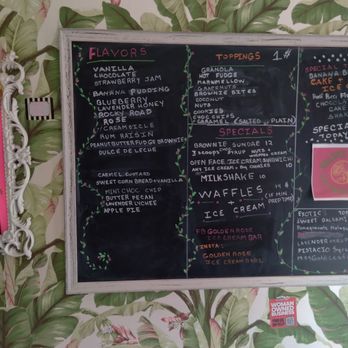 FLAVORS
VANILLA
CHOCOLATE
STRAWBERRY JAM
BANANA PUDDING
BLUEBERRY
LAVENDER HONEY
ROCKY ROAD
ROSE
CREAMSICLE
RUM RAISIN
PEANUT BUTTER FUDGE BROWNIES
DULCE DE LECHE
CARAMEL CUSTARD
SWEET CORN BREAD + VANILLA
MINT CHOC CHIP
BUTTER PECAN
LAVENDER LYCHEE
APPLE PIE
TOPPINGS 1#
GRANOLA
HOT FUDGE
MARSHMELLOW
GRAPENUTS
BROWNIE BITES
COCONUT
NUTS
COOKIES
CHOC CHIPS
CARAMEL (SALTED or PLAIN)
SPECIALS
BROWNIE SUNDAE 12
3 SCOOPS SYRUP NUTS + WHIPPED CREAM
OPEN FACE ICE CREAM SANDWICH
ANY ICE CREAM + BIG COOKIES 10
MILKSHAKE 10
WAFFLES
+
ICE CREAM
14
(15 MIN
PREP TIME)
FB GOLDEN ROSE
ICE CREAM BAR
INSTA:
GOLDEN ROSE
ICE CREAM BAR
SPECIAL
BANANA
CAKE +
ICE
SPECIAL
TODAY
EXOTIC
SWEET BALSAMIC
LAVENDER
PISTACIO
WOMAN
OWNED
BUSINESS